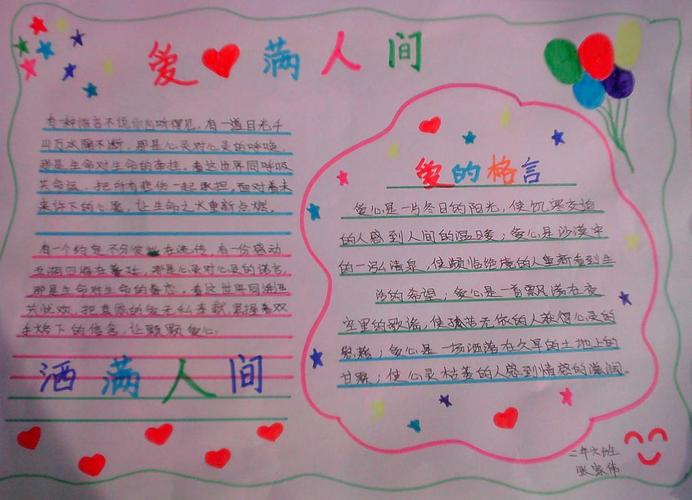 爱满人间
有一种语言不说你也听得见,有一道目光千
山万水隔不断,那是心灵对心灵的呼唤,
那是生命对生命的牵挂。看这世界同呼吸
共命运,把所有悲伤一起承担。面对着未
来许下的心愿,让生命之火重新点燃。
有一个约定不分彼此在流传,有一份感动
五湖四海在蔓延,那是心灵对心灵的诺言,
那是生命对生命的眷恋。看这世界
共悲欢,把真情的爱无私奉献。紧握着双
手烙下的信念,让颗颗爱心
洒满人间
爱的格言
爱心是一片冬日的阳光,使饥寒交迫
的人感到人间的温暖;爱心是沙漠中
的一泓清泉,使频临绝境的人重新看到生
活的希望;爱心是一首飘荡在夜
空里的歌谣,使孤苦无依的人获得心灵的
慰藉;爱心是一场洒落在久旱的土地上的
甘霖;使心灵枯萎的人感到情感的滋润。
二年六班